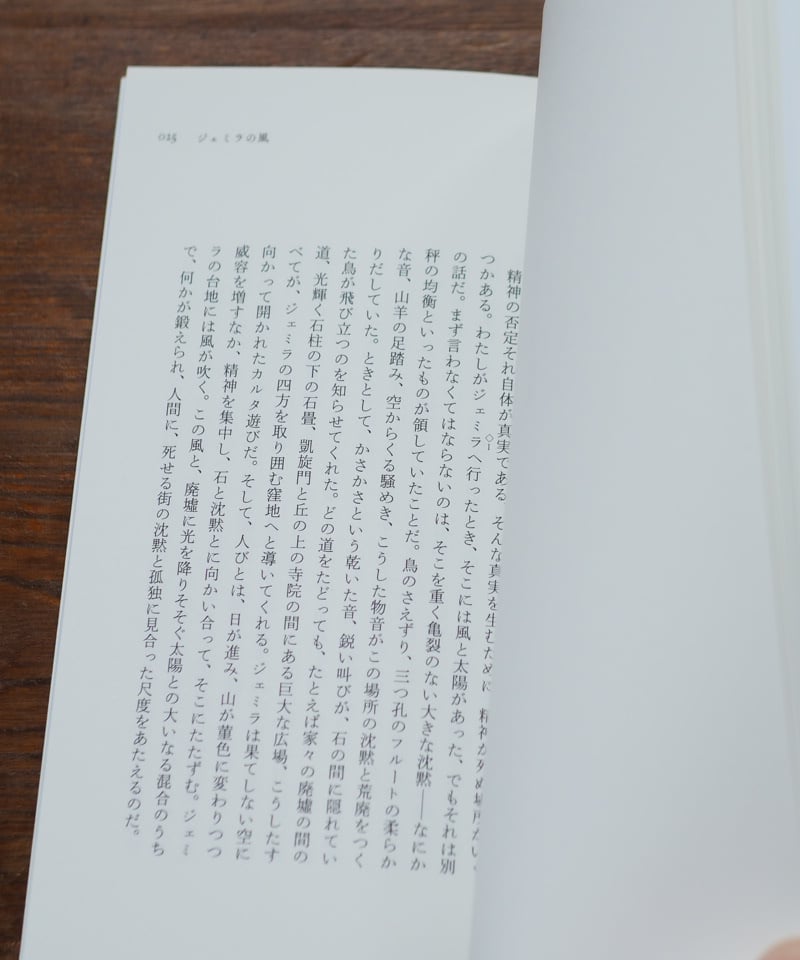 025 ジェミラの風
精神の否定それ自体が真実である そんな真実を生むために 精神が死ぬ場所がい
つかある。わたしがジェミラへ行ったとき、そこには風と太陽があった、でもそれは別
◇1
の話だ。まず言わなくてはならないのは、そこを重く亀裂のない大きな沈黙――なにか
秤の均衡といったものが領していたことだ。鳥のさえずり、三つ孔のフルートの柔らか
な音、山羊の足踏み、空からくる騒めき、こうした物音がこの場所の沈黙と荒廃をつく
りだしていた。ときとして、かさかさという乾いた音、鋭い叫びが、石の間に隠れてい
た鳥が飛び立つのを知らせてくれた。どの道をたどっても、たとえば家々の廃墟の間の
道、光輝く石柱の下の石畳、凱旋門と丘の上の寺院の間にある巨大な広場、こうしたす
べてが、ジェミラの四方を取り囲む窪地へと導いてくれる。ジェミラは果てしない空に
向かって開かれたカルタ遊びだ。そして、人びとは、日が進み、山が菫色に変わりつつ
威容を増すなか、精神を集中し、石と沈黙とに向かい合って、そこにたたずむ。ジェミ
ラの台地には風が吹く。この風と、廃墟に光を降りそそぐ太陽との大いなる混合のうち
で、何かが鍛えられ、人間に、死せる街の沈黙と孤独に見合った尺度をあたえるのだ。